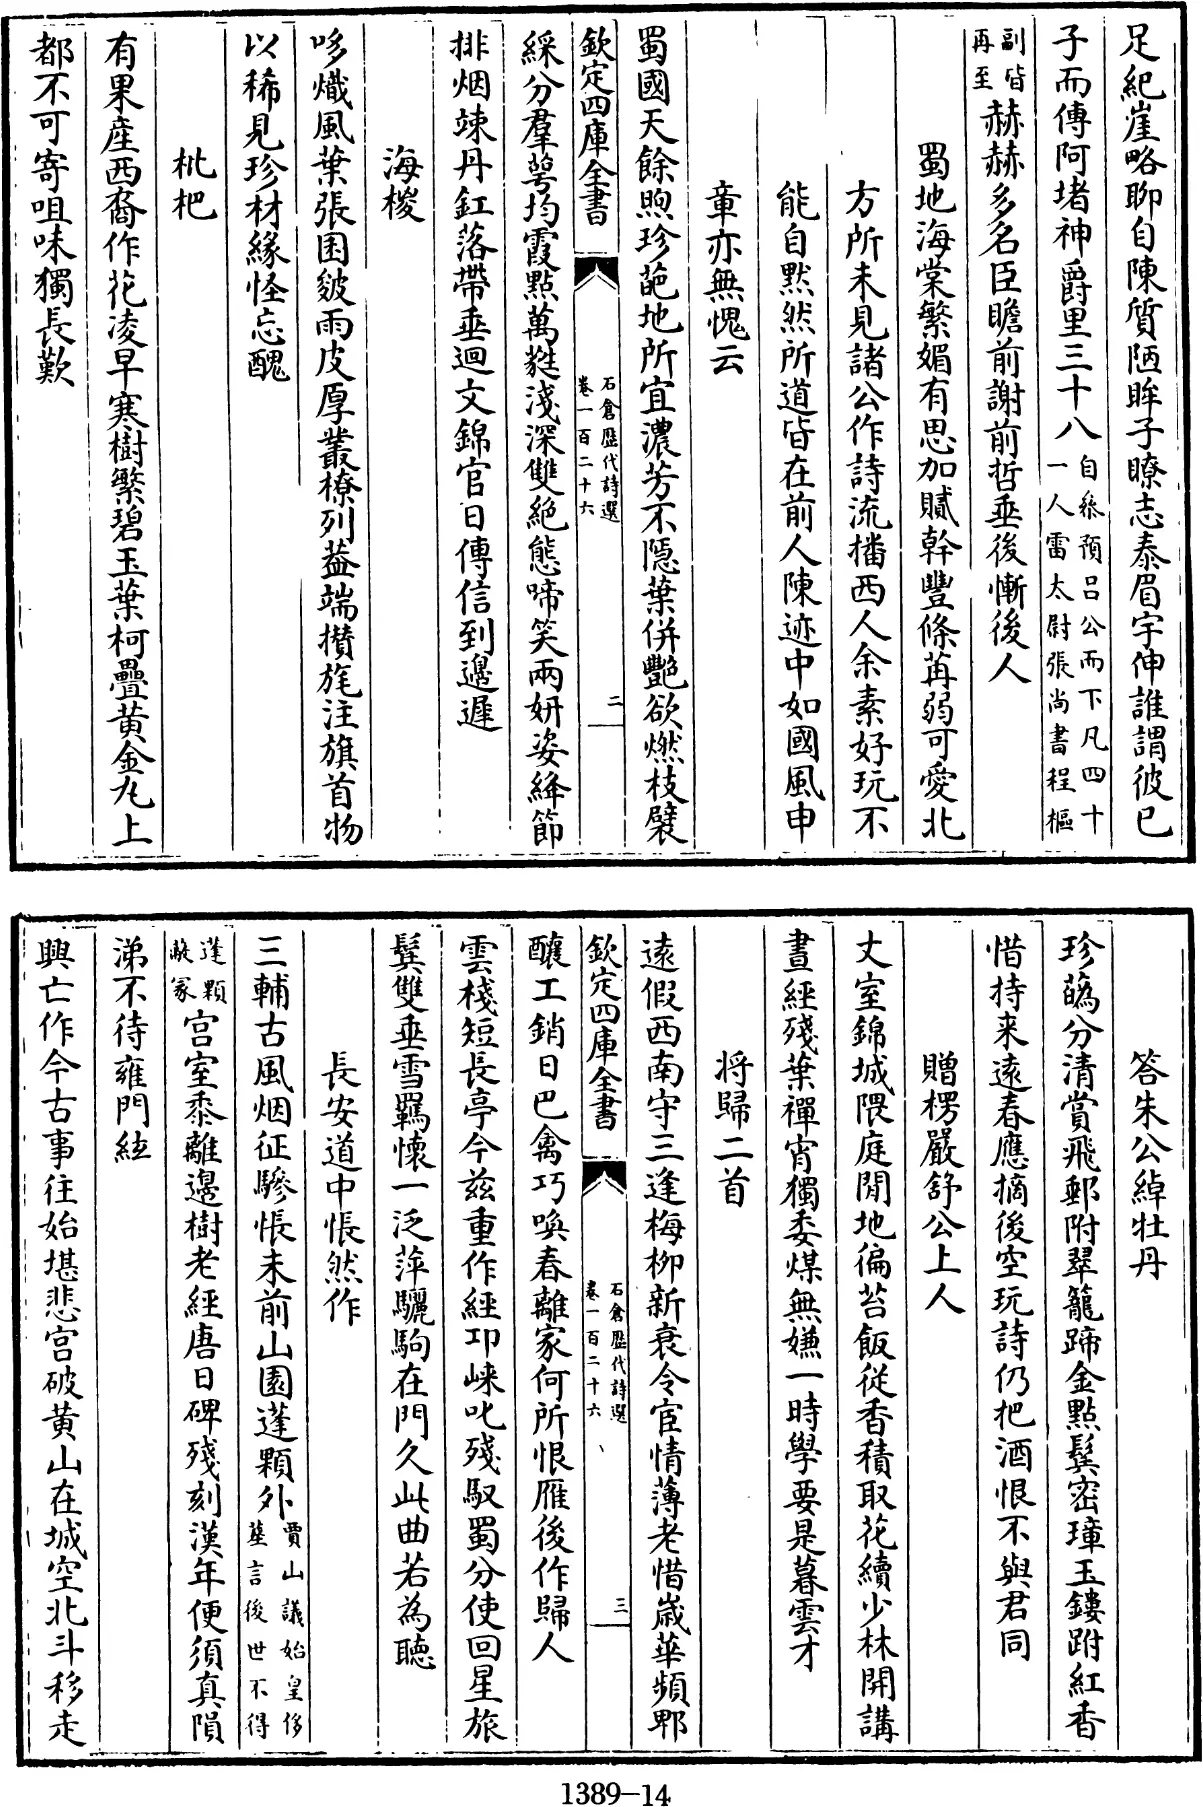 足紀崖略聊自陳質陋眸子瞭志泰眉宇伸誰謂彼已
子而傳阿堵神爵里三十八自叅預吕公而下凡四十一人雷太尉張尚書程樞
副皆再至赫赫多名臣瞻前謝前哲垂後慚後人
蜀地海棠繁媚有思加膩幹豐條苒弱可愛北
方所未見諸公作詩流播西人余素好玩不
能自黙然所道皆在前人陳迹中如國風申
章亦無愧云
蜀國天餘煦珍葩地所宜濃芳不隱葉併艷欲燃枝襞
欽定四庫全書
石倉歷代詩選
卷一百二十六
二
綵分羣萼均霞點萬蕤淺深雙絶態啼笑兩妍姿絳節
排烟竦丹釭落帶垂迴文錦官日傳信到邊遲
海椶
哆熾風葉張囷皴雨皮厚叢橑列葢端攢旄注旗首物
以稀見珍材緣怪忘醜
枇杷
有果産西裔作花凌早寒樹繁碧玉葉柯疊黄金丸上
都不可寄咀味獨長歎
答朱公綽牡丹
珍蘤分清賞飛郵附翠籠蹄金㸃鬓密璋玉鏤跗紅香
惜持来逺春應摘後空玩詩仍把酒恨不與君同
贈楞嚴舒公上人
丈室錦城隈庭閒地徧苔飯從香積取花續少林開講
晝經殘葉禪宵獨委煤無嫌一時學要是暮雲才
将歸二首
逺假西南守三逢梅柳新衰令宦情薄老惜嵗華頻郫
欽定四庫全書
石倉歷代詩選
卷一百二十六
三
釀工銷日巴禽巧喚春離家何所恨雁後作歸人
雲棧短長亭今兹重作經卭崍叱殘馭蜀分使回星旅
鬓雙垂雪羈懷一泛萍驪駒在門久此曲若為聽
長安道中悵然作
三輔古風烟征驂悵未前山園蓬顆外賈山議始皇侈墓言後世不得
蓬顆蔽冢宫室黍離邊樹老經唐日碑殘刻漢年便須真隕
涕不待雍門絃
興亡作今古事往始堪悲宫破黄山在城空北斗移走
1389-14